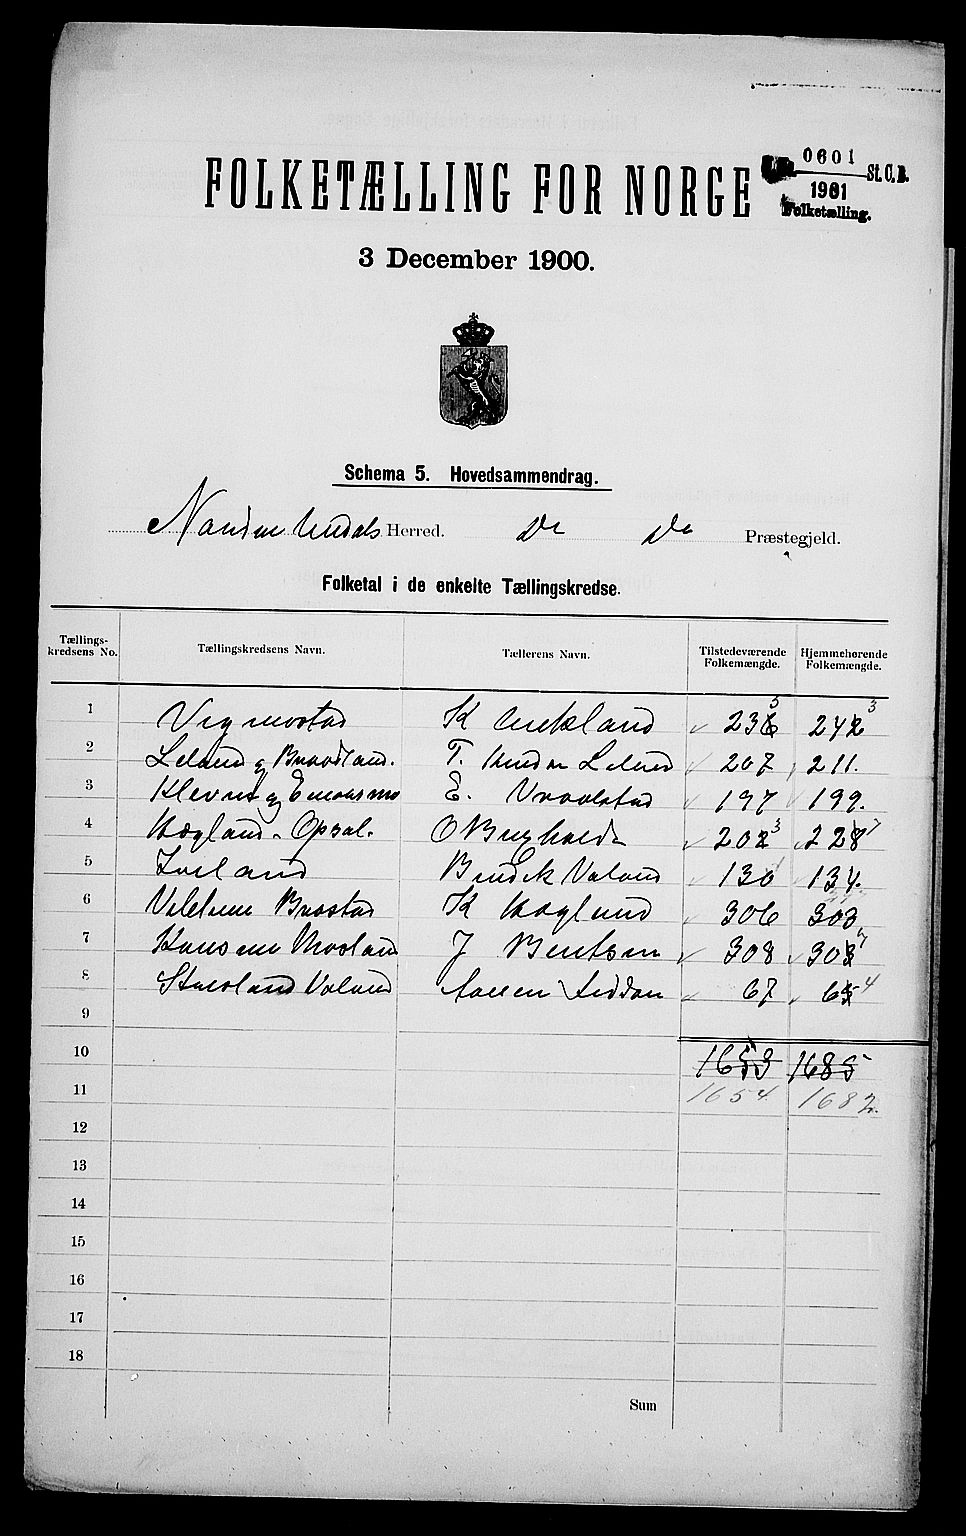 0601
FOLKETÆLLING FOR NORGE
St. C. B.
1901
Folketælling.
3 December 1900.
Schema 5. Hovedsammendrag.
Nordre Undals Herred. Do Do Præstegjeld.
Folketal i de enkelte Tællingskredse.
Tællingskredsens No. Tællingskredsens Navn. Tællerens Navn. Tilstedeværende Folkemængde. Hjemmehørende Folkemængde.
1 Vigmostad K 236 5 242 3
2 Leland og Braadland. T. Leland 207 211.
3 Kleven og E. 197 199.
4 Høgland Opsal. O 202 3 228 7
5 Ivland Bendik Valand 130 134.
6 K Høgland 306 303
7 J Bentsen 308 303 7
8 Valand 67 65 4
9
10 1653 1685
11 1654 1682.
12
13
14
15
16
17
18
Sum